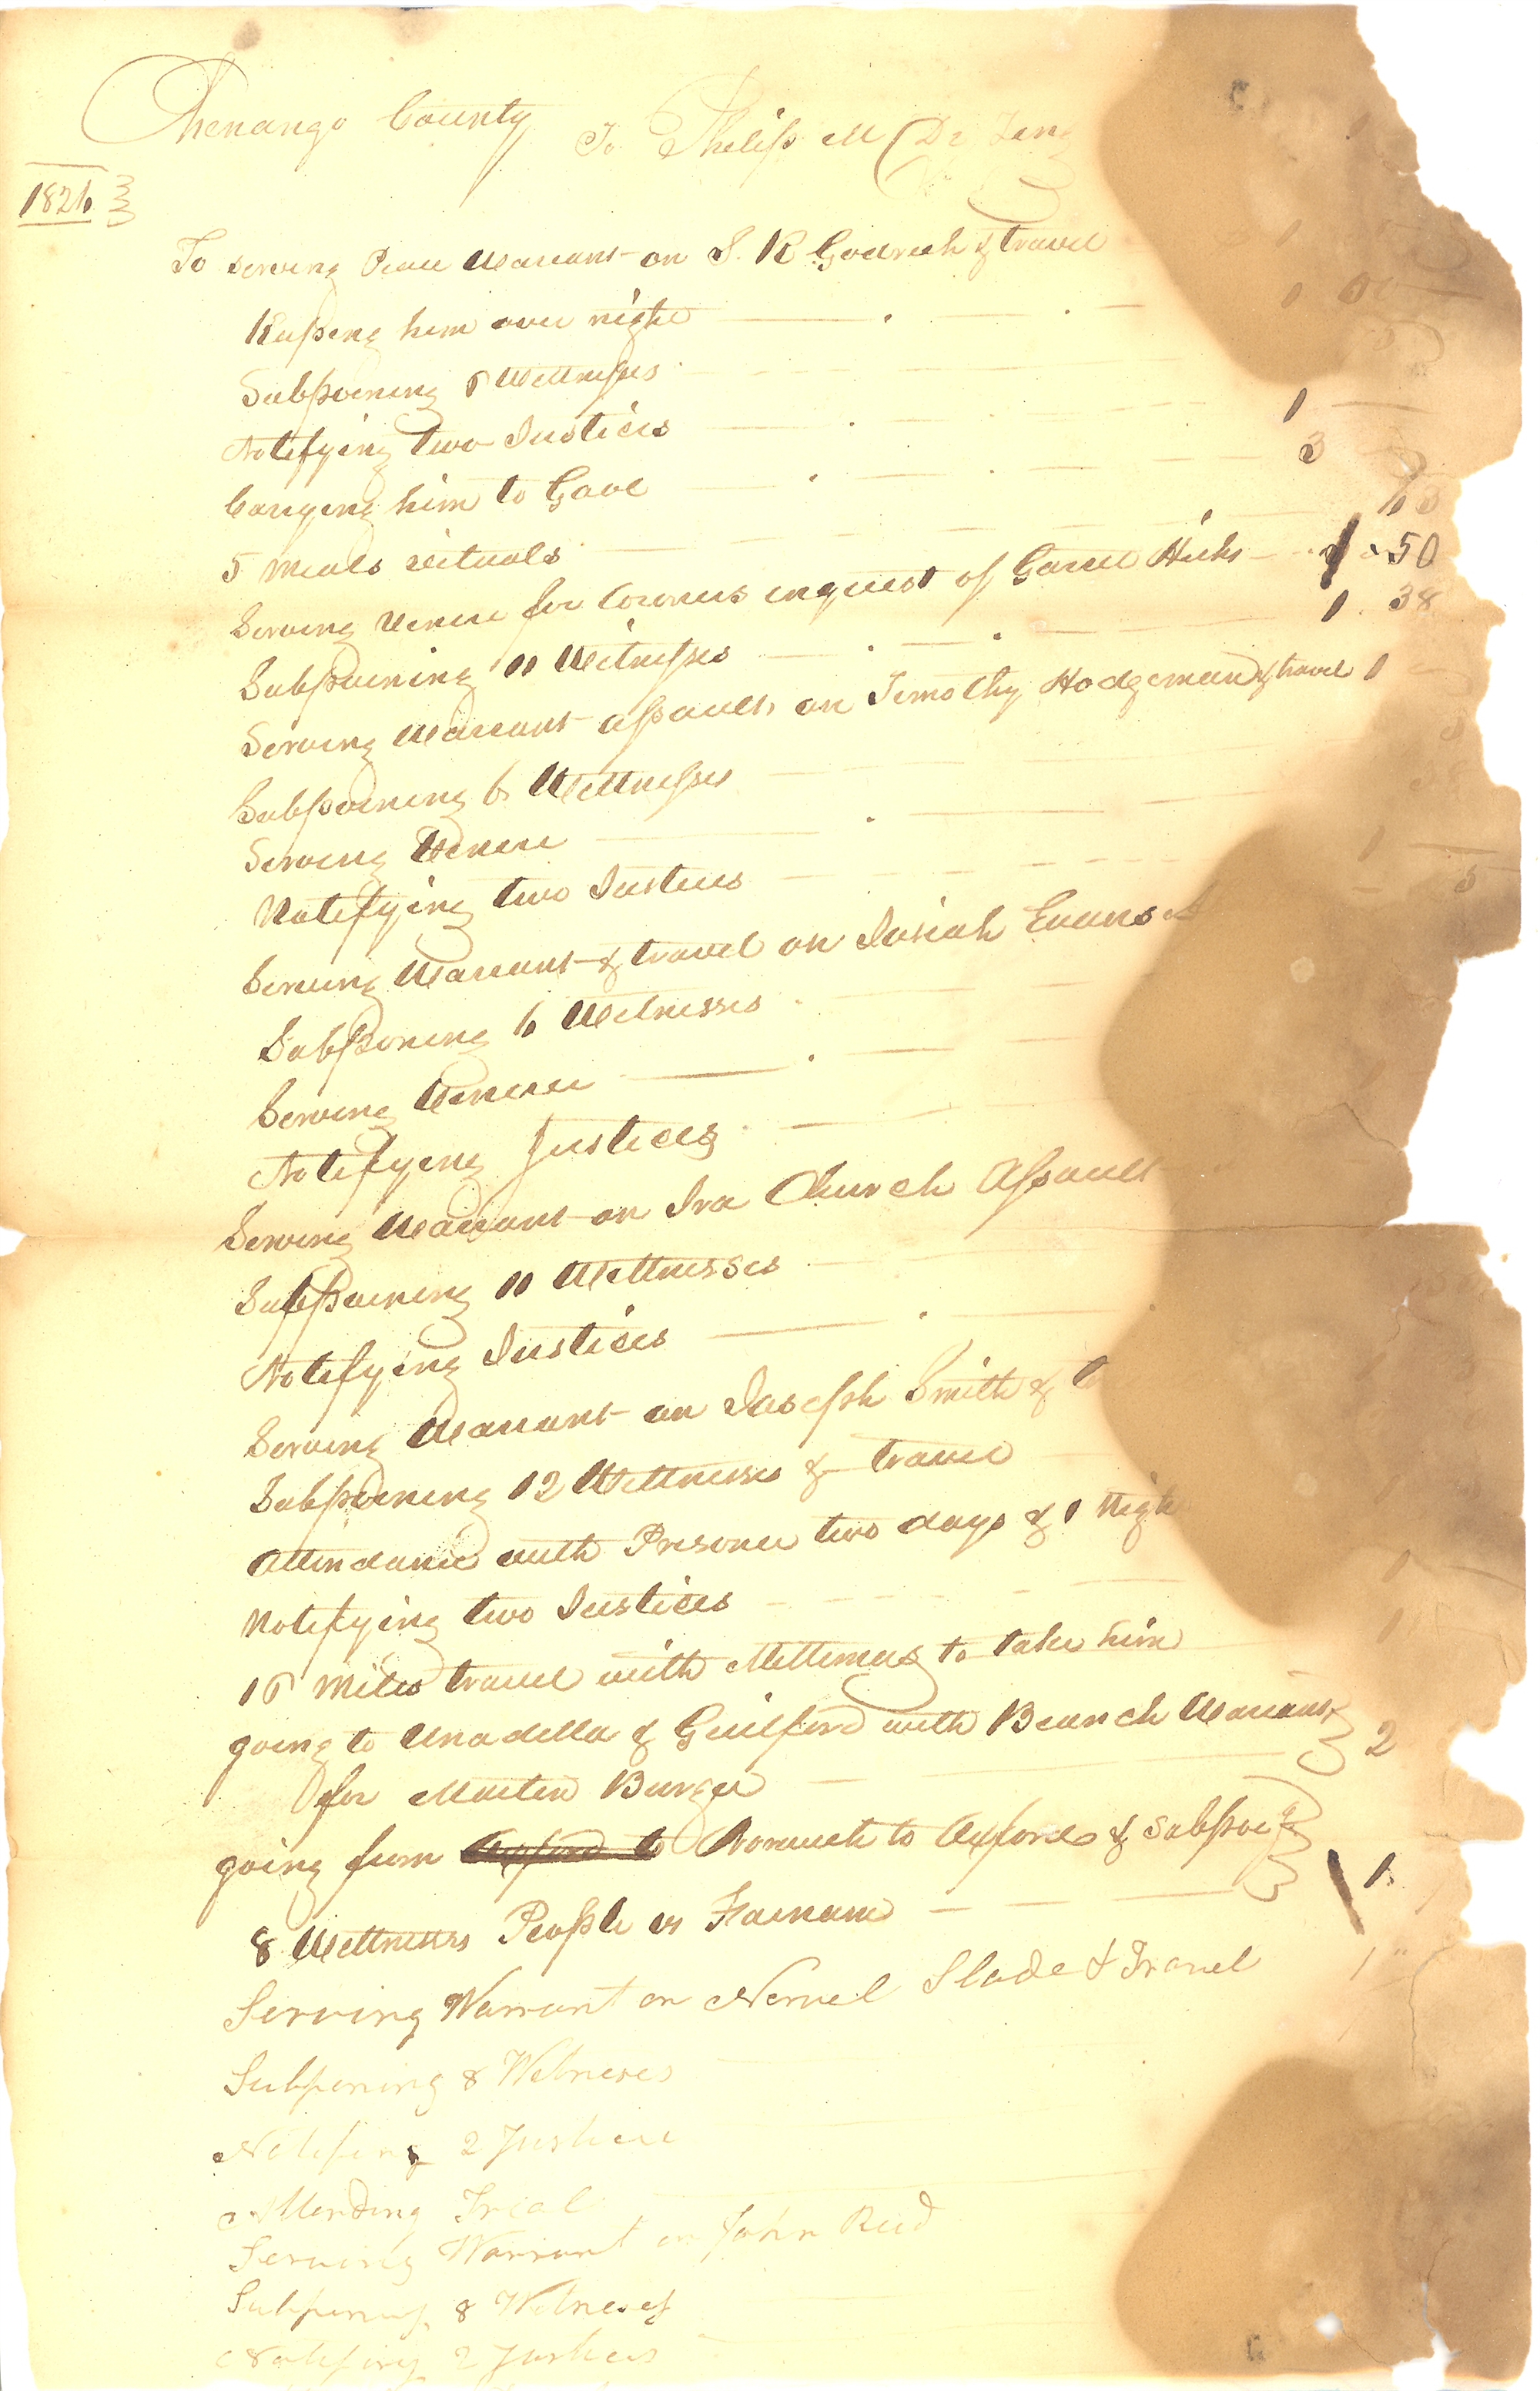 Chenango County To Philip M De Zeng
1826
To serving Peace Warrant on S. R Goodrich & travel
Keeping him over night
Subpoening 6 Wittnesses
Notifying two Justices 1
Carrying him to Gaol 3
5 Meals vituals 63
Serving Venire for Coroners inquest of Garret Hicks 50
Subpoening 11 Witnesses 1 38
Serving Warrant assault on Timothy Hodgeman & travel 1
Subpoening 6 Wittnesses
Serving Venire
Notifying two Justices
Serving Warrant & travel on Josiah Evans
Subpoening 6 Witnesses
Serving Venire
Notifying Justices
Serving Warrant on Ira Church Assault
Subpoening 11 Wittnesses
Notifying Justices
Serving Warrant on Joseph Smith &
Subpoening 12 Wittnesses & travel
Attendance with Prisoner two days & 1 Nigh
Notifying two Justices
10 Miles travel with Mittimus to take him
going to Unadilla & Guilford with Beanch Warrant 2
for Martin Burge
going from Oxford to Norwich to Oxford & subpoe 1
8 Wittnesses People vs Farnam
Serving Warrant on Newel Slade & Travel 1
Subpening 8 Witneses
Notifing 2 Justice
Attending Trial
Serving Warrant on John Reed
Subpening 8 Witneses
Notifing 2 Justices